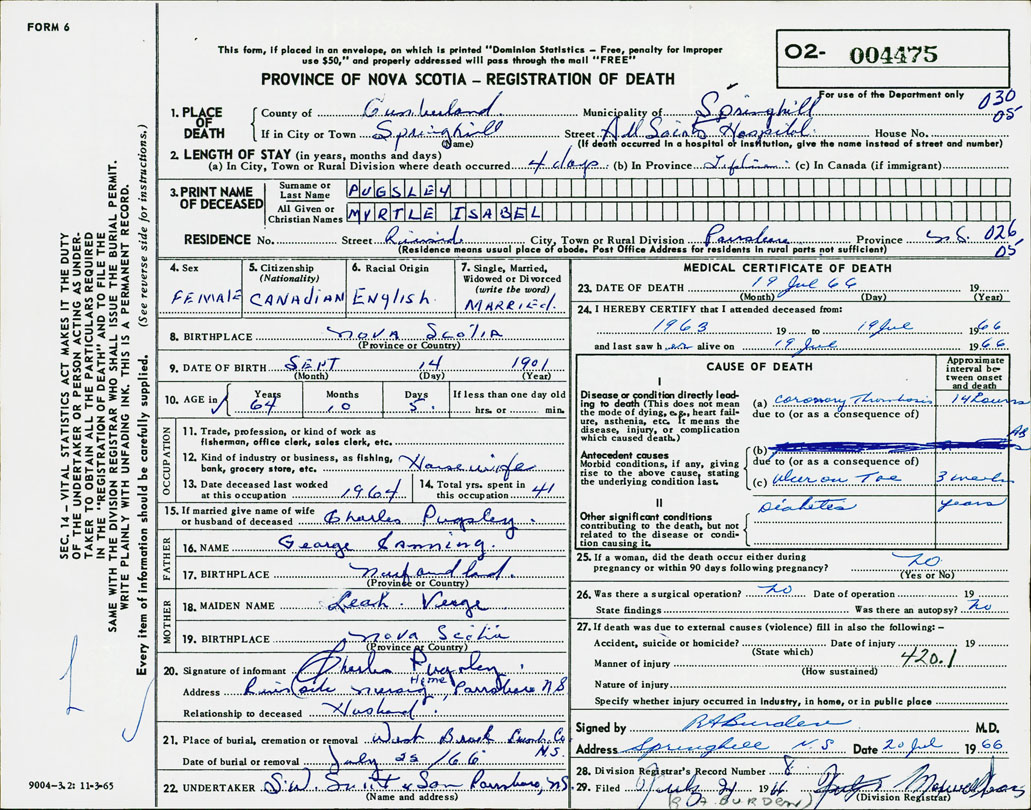 FORM 6
This form, if placed in an envelope, on which is printed "Dominion Statistics – Free, penalty for improper
use $50," and properly addressed will pass through the mail "FREE"
PROVINCE OF NOVA SCOTIA – REGISTRATION OF DEATH
O2- 004475
For use of the Department only
030
05
1. PLACE OF DEATH
County of Cumberland Municipality of Springhill
If in City or Town Springhill Street All Saints Hospital House No.
(Name) (If death occurred in a hospital or institution, give the name instead of street and number)
2. LENGTH OF STAY (in years, months and days)
(a) In City, Town or Rural Division where death occurred 4 days (b) In Province Lifetime (c) In Canada (if immigrant)
3. PRINT NAME OF DECEASED
Surname or Last Name PUGSLEY
All Given or Christian Names MYRTLE ISABEL
RESIDENCE No. Street Riverside City, Town or Rural Division Parrsboro Province N.S. 026
(Residence means usual place of abode. Post Office Address for residents in rural parts not sufficient) 05
4. Sex FEMALE
5. Citizenship (Nationality) CANADIAN
6. Racial Origin English
7. Single, Married, Widowed or Divorced (write the word) MARRIED.
8. BIRTHPLACE NOVA SCOTIA
(Province or Country)
9. DATE OF BIRTH SEPT 14 1901
(Month) (Day) (Year)
10. AGE in Years 64 Months 10 Days 5 If less than one day old hrs. or min.
OCCUPATION
11. Trade, profession, or kind of work as fisherman, office clerk, sales clerk, etc.
12. Kind of industry or business, as fishing, bank, grocery store, etc. Housewife
13. Date deceased last worked at this occupation 1964 14. Total yrs. spent in this occupation 41
15. If married give name of wife or husband of deceased Charles Pugsley.
FATHER
16. NAME George Canning.
17. BIRTHPLACE Newfoundland.
(Province or Country)
MOTHER
18. MAIDEN NAME Leah. Verge
19. BIRTHPLACE Nova Scotia
(Province or Country)
20. Signature of informant Charles Pugsley.
Address Riverside Nursing Home, Parrsboro NS
Relationship to deceased Husband.
21. Place of burial, cremation or removal West Brook Cumb. Co. N.S.
Date of burial or removal July 22/66
22. UNDERTAKER S.W. Smith & Son Parrsboro, NS
(Name and address)
MEDICAL CERTIFICATE OF DEATH
23. DATE OF DEATH 19 Jul 66 19
(Month) (Day) (Year)
24. I HEREBY CERTIFY that I attended deceased from:
1963 19 to 19 Jul 1966
and last saw her alive on 19 Jul 1966
CAUSE OF DEATH
Approximate interval between onset and death
I
Disease or condition directly leading to death (This does not mean the mode of dying, e.g., heart failure, asthenia, etc. It means the disease, injury, or complication which caused death.)
(a) coronary thrombosis 14 hours
due to (or as a consequence of)
Antecedent causes
Morbid conditions, if any, giving rise to the above cause, stating the underlying condition last.
(b)
due to (or as a consequence of)
(c) Ulcer on Toe 3 weeks
II
Other significant conditions contributing to the death, but not related to the disease or condition causing it.
Diabetes years
25. If a woman, did the death occur either during pregnancy or within 90 days following pregnancy? No
(Yes or No)
26. Was there a surgical operation? No Date of operation 19
State findings Was there an autopsy? No
27. If death was due to external causes (violence) fill in also the following:–
Accident, suicide or homicide? Date of injury 19
(State which)
Manner of injury 420.1
(How sustained)
Nature of injury
Specify whether injury occurred in Industry, in home, or in public place
Signed by RA Burden M.D.
Address Springhill N.S Date 20 Jul 1966
28. Division Registrar's Record Number 8
29. Filed July 21 1966
(Division Registrar)
(R A BURDEN)
SEC. 14 – VITAL STATISTICS ACT MAKES IT THE DUTY
OF THE UNDERTAKER OR PERSON ACTING AS UNDER-
TAKER TO OBTAIN ALL THE PARTICULARS REQUIRED
IN THE "REGISTRATION OF DEATH" AND TO FILE THE
SAME WITH THE DIVISION REGISTRAR WHO SHALL ISSUE THE BURIAL PERMIT.
WRITE PLAINLY WITH UNFADING INK. THIS IS A PERMANENT RECORD.
Every item of information should be carefully supplied. (See reverse side for instructions.)
9004-3.2: 11-3-65